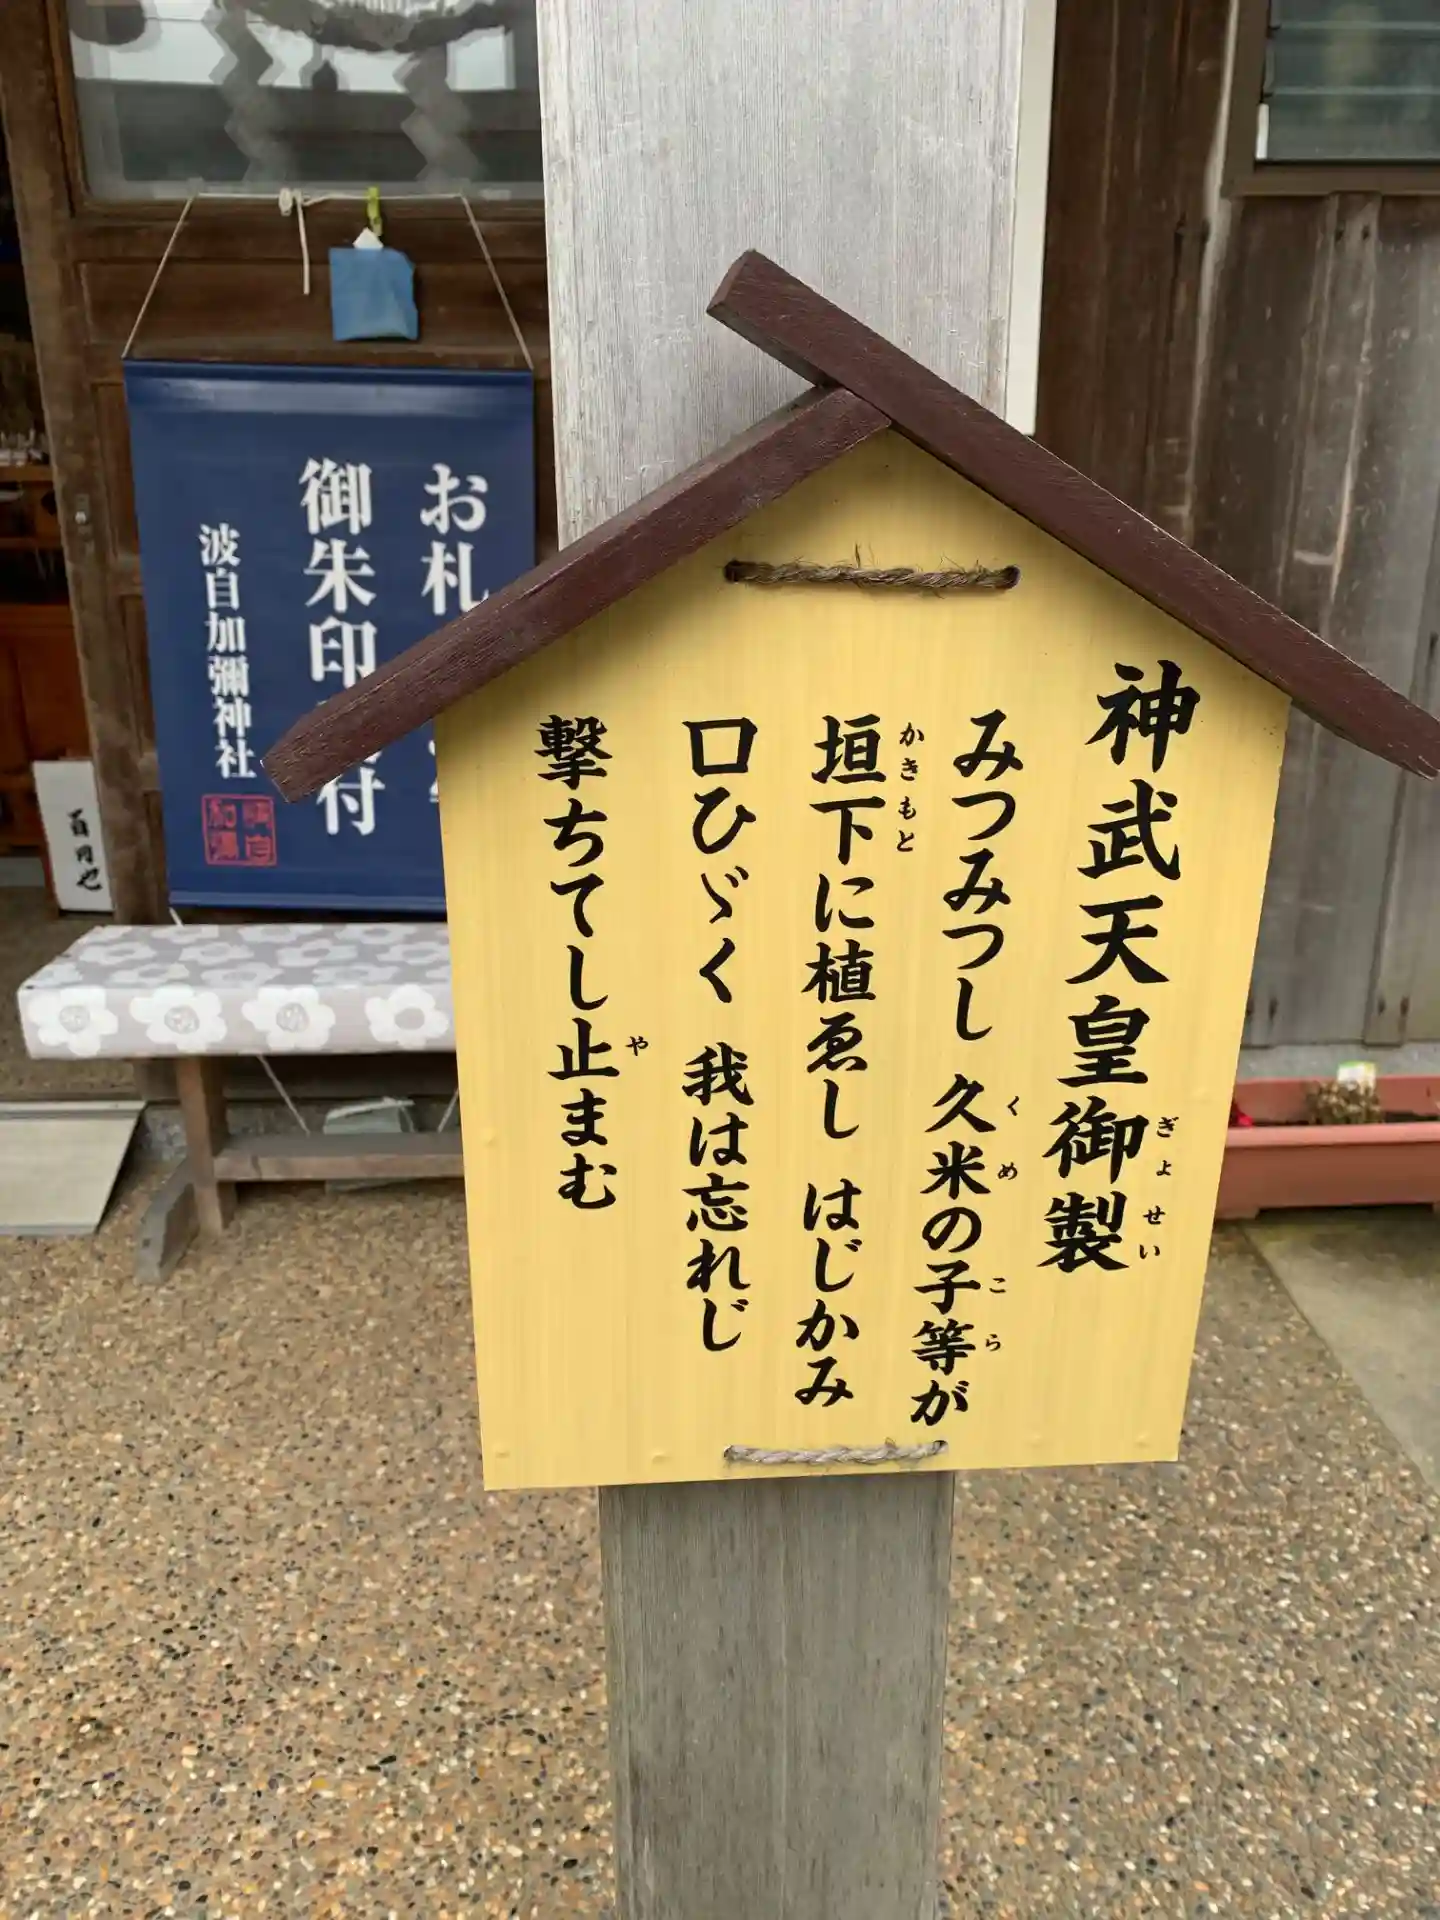 神武天皇御製
ぎょせい
みつみつし 久米の子等が
くめ
こら
垣下に植ゑし はじかみ
かきもと
口ひゞく 我は忘れじ
撃ちてし止まむ
や
お札
御朱印
付
波自加彌神社